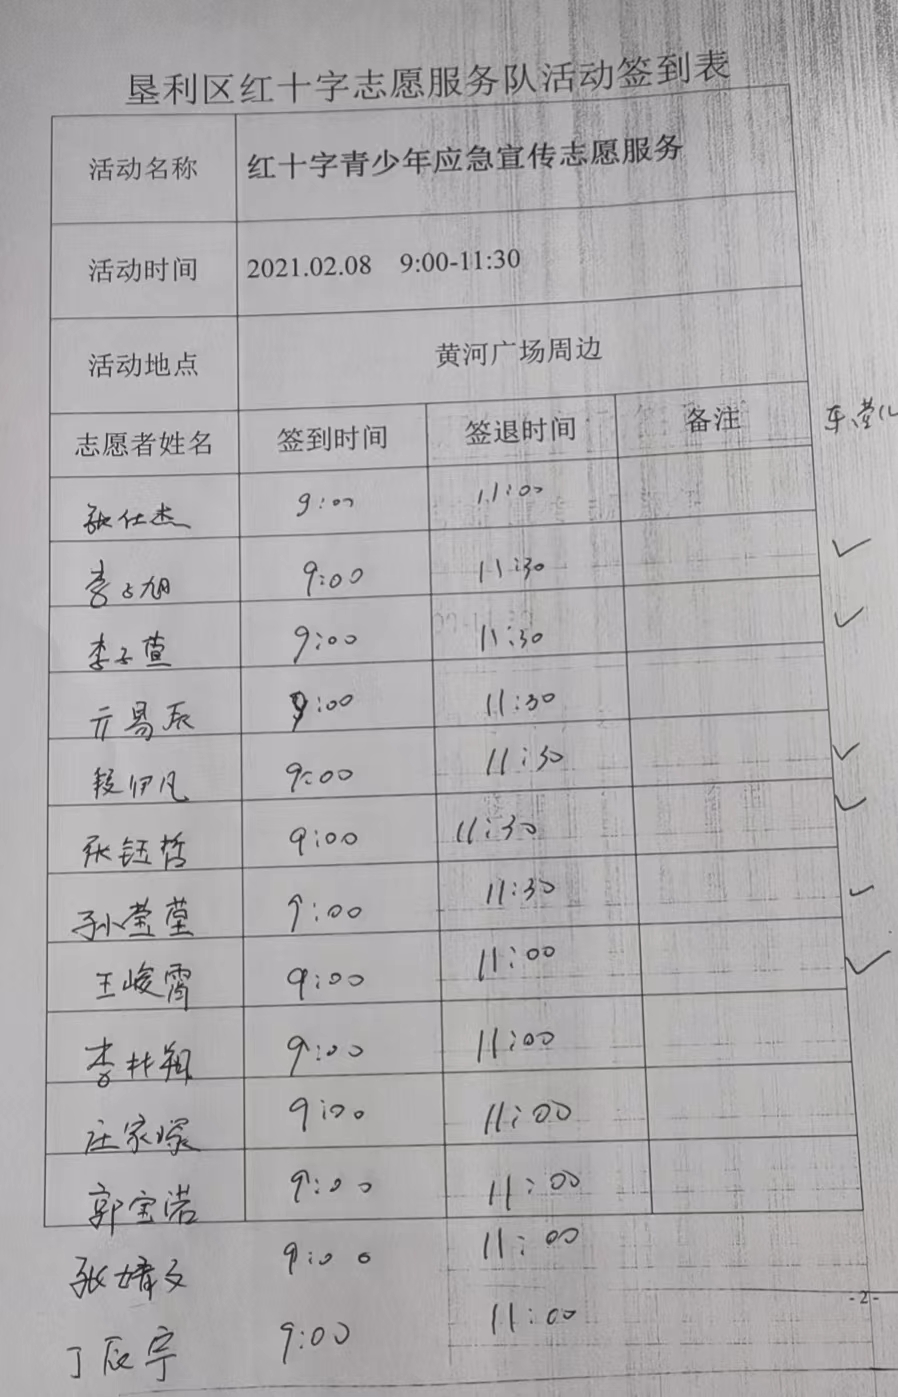 垦利区红十字志愿服务队活动签到表
活动名称 红十字青少年应急宣传志愿服务
活动时间 2021.02.08 9:00-11:30
活动地点 黄河广场周边
志愿者姓名 签到时间 签退时间 备注
张仕杰 9:00 11:00
李占旭 9:00 11:30
李子萱 9:00 11:30
亓昜辰 9:00 11:30
段伊凡 9:00 11:30
张钰哲 9:00 11:30
孙莹莹 9:00 11:30
王峻霄 9:00 11:00
李林翔 9:00 11:00
庄家嫁 9:00 11:00
郭宝诺 9:00 11:00
张婧文 9:00 11:00
丁辰宁 9:00 11:00
-2-